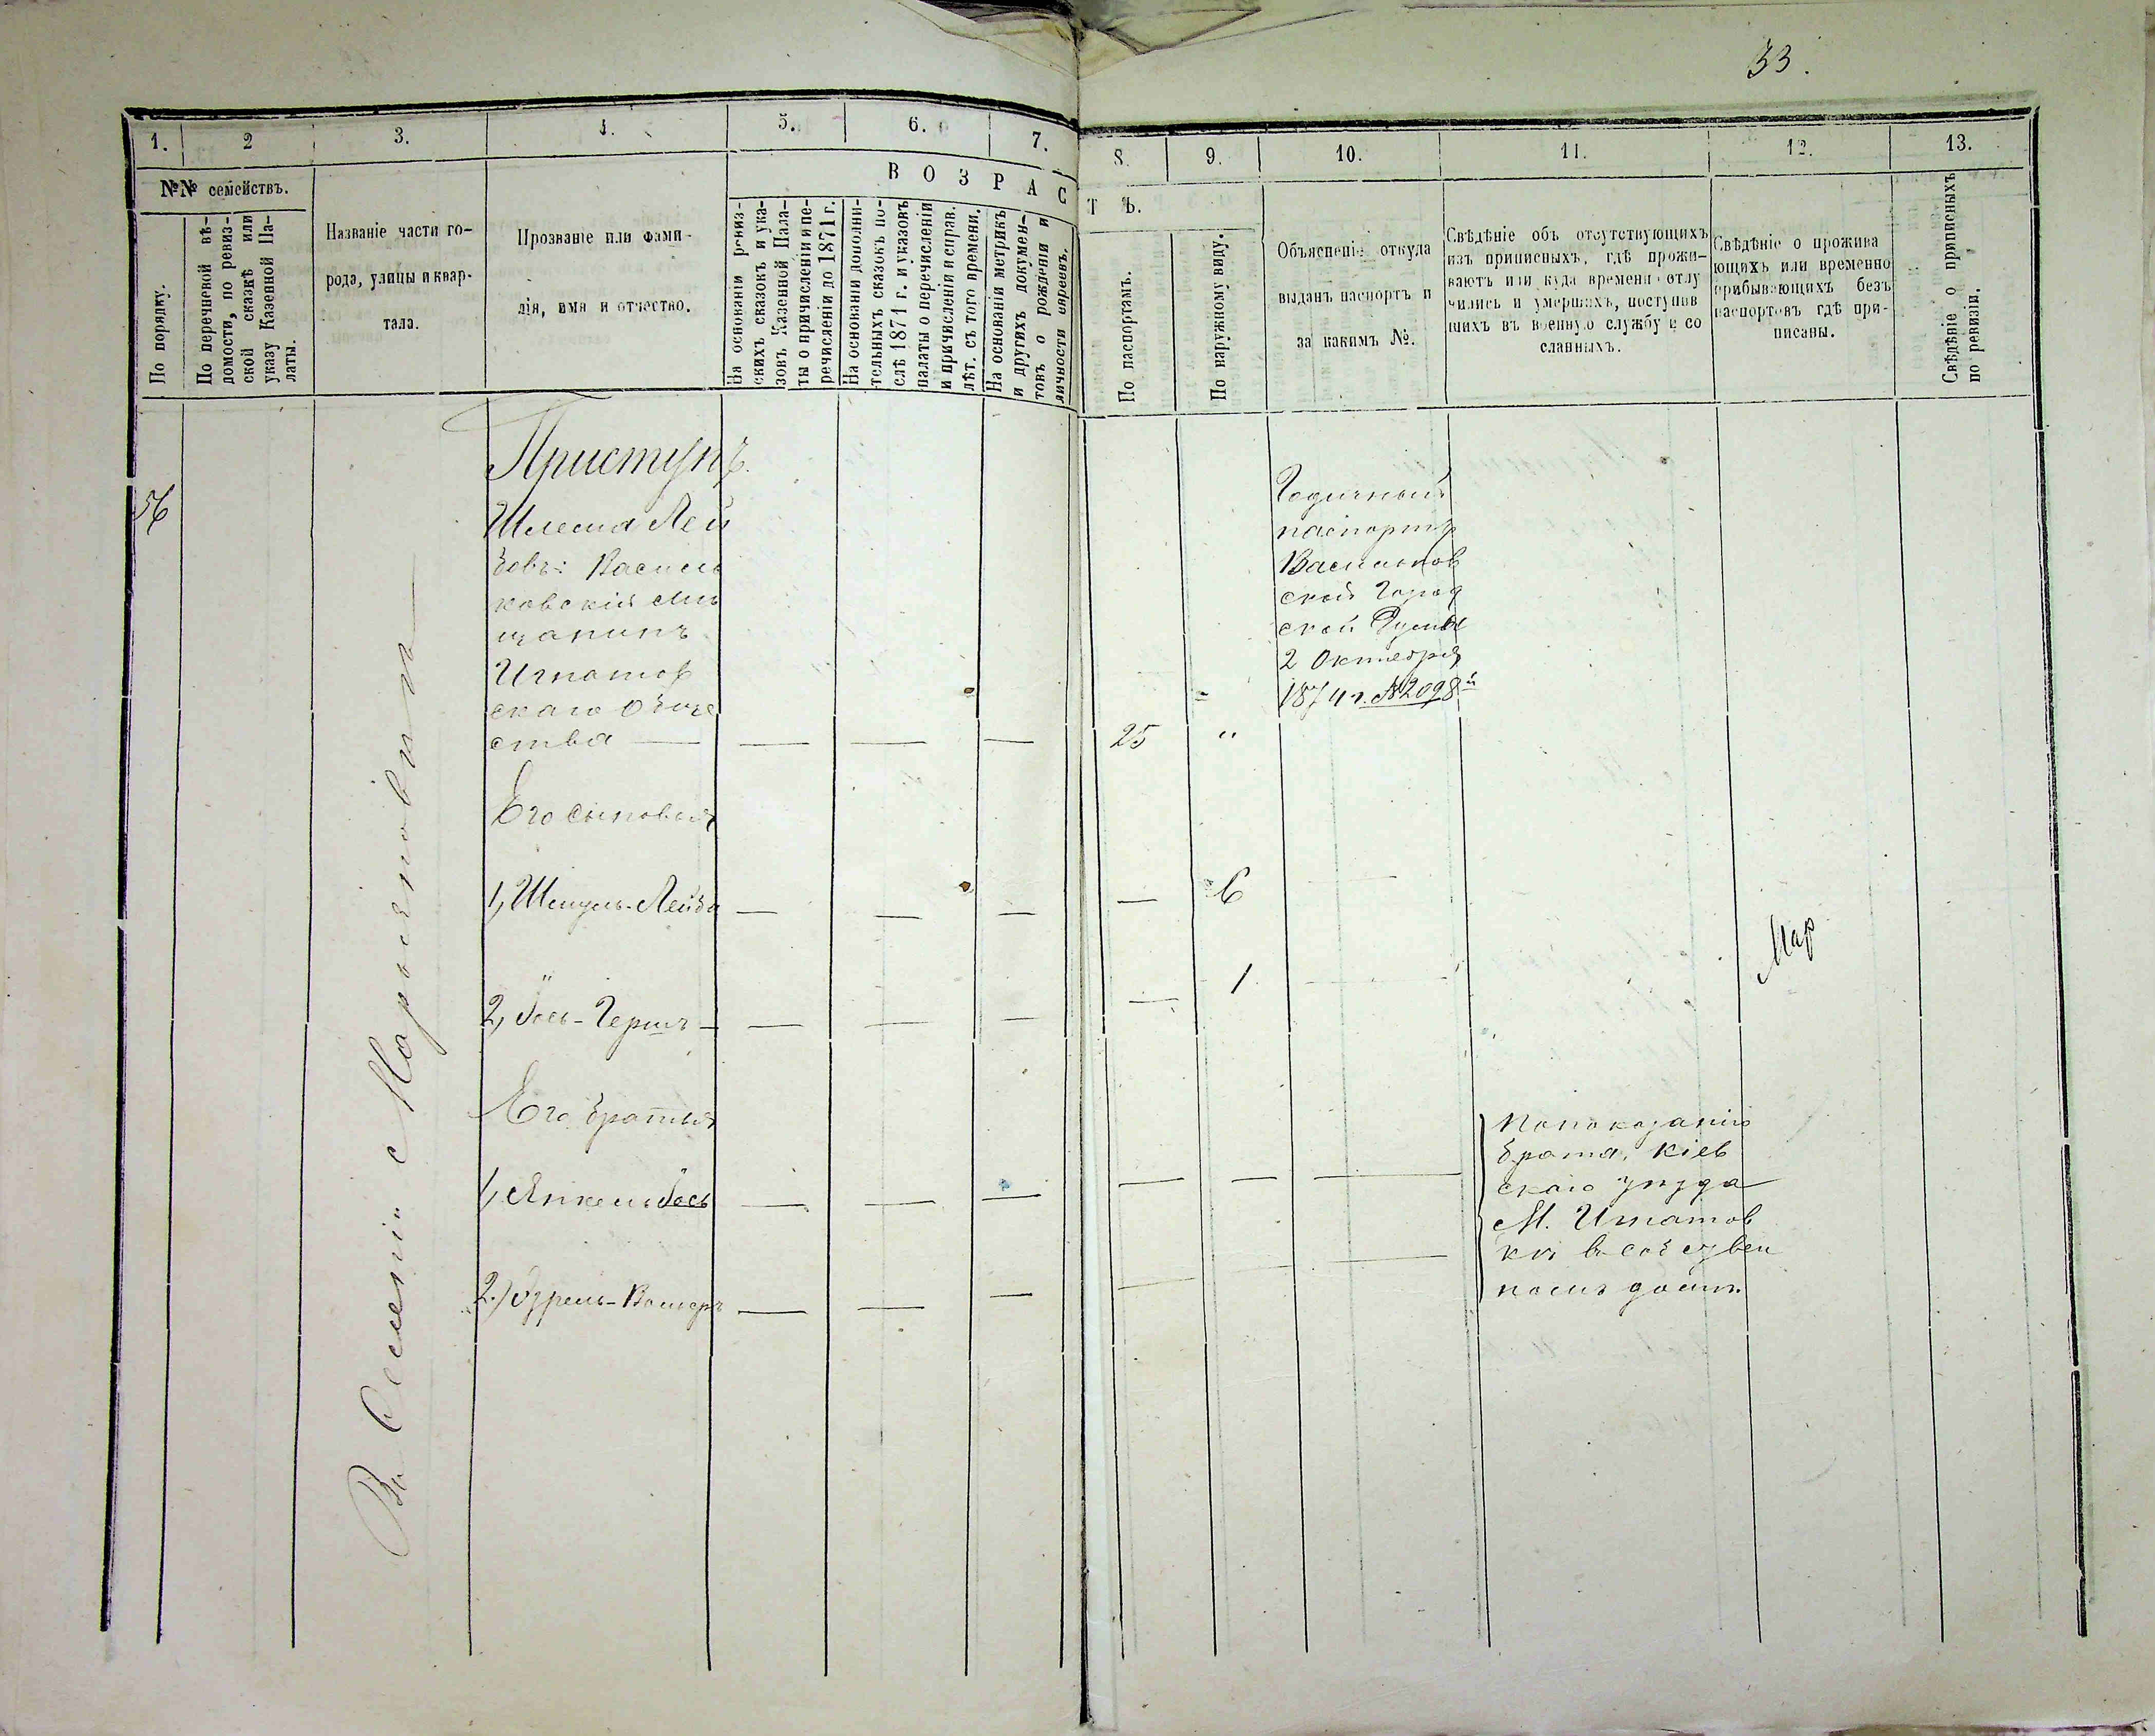 33.
1. 2 3. 4. 5. 6. 7. 8. 9. 10. 11. 12. 13.
№№ семействъ.
По порядку.
По перечневой вѣ-
домости, по ревиз-
ской сказкѣ или
указу Казенной Па-
латы.
Названіе части го-
рода, улицы и квар-
тала.
Прозваніе или фами-
лія, имя и отчество.
ВОЗРАСТЪ.
На основаніи ревиз-
скихъ сказокъ и ука-
зовъ Казенной Пала-
ты о причисленіи и пе-
речисленіи до 1871 г.
На основаніи дополни-
тельныхъ сказокъ по-
слѣ 1871 г. и указовъ
палаты о перечисленіи
и причисленіи и справ.
лѣт. съ того времени.
На основаніи метрикъ
и другихъ докумен-
товъ о рожденіи и
личности евреевъ.
По паспортамъ.
По наружному виду.
Объясненіе откуда
выданъ паспортъ и
за какимъ №.
Свѣдѣніе объ отсутствующихъ
изъ приписныхъ, гдѣ прожи-
ваютъ или куда временно отлу
чились и умершихъ, поступив
шихъ въ военную службу и со
сланныхъ.
Свѣдѣніе о прожива
ющихъ или временно
прибывающихъ безъ
паспортовъ гдѣ при-
писаны.
Свѣдѣніе о приписныхъ
по ревизіи.
56
Въ Селеніи Марьяновкѣ
Приступъ.
Шлема Лей
бовъ: Василь
ковскій мѣ
щанинъ
Игнатов
скаго Обще
ства —
25 "
Годичный
паспортъ
Васильков
ской Город
ской Думы
2 Октября
1874 г. №2098й
Его сыновья
1, Шмуль-Лейба — — — — 6 —
2, Іось-Гершъ — — — — — 1 —
Мар
Его братья
1, Янкель Іось — — — — — —
2.) Азрель-Волько — — — — — —
По показанію
брата, Кіев
скаго уѣзда
М. Игнатов
кѣ въ собствен
номъ домѣ.